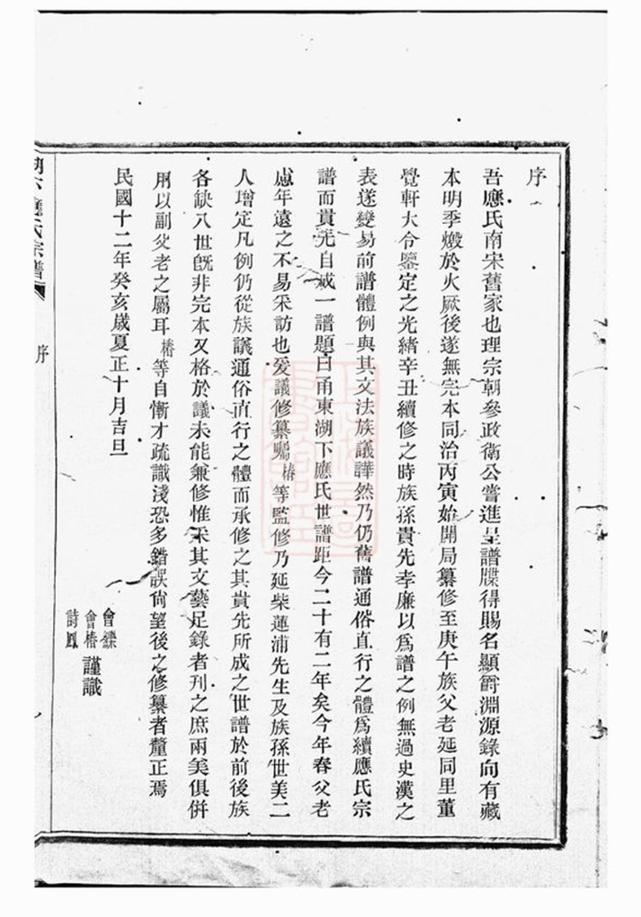 序
吾應氏南宋舊家也理宗朝參政衛公嘗進呈譜牒得賜名顯爵淵源錄向有藏
本明季燬於火厥後遂無完本同治丙寅始開局纂修至庚午族父老延同里董
覺軒大令鑒定之光緒辛丑續修之時族孫貴先孝廉以爲譜之例無過史漢之
表遂變易前譜體例與其文法族議譁然乃仍舊譜通俗直行之體爲續應氏宗
譜而貴先自成一譜題曰甬東湖下應氏世譜距今二十有二年矣今年春父老
慮年遠之不易采訪也爰議修纂屬椿等監修乃延柴蓮浦先生及族孫世美二
人增定凡例仍從族議通俗直行之體而承修之其貴先所成之世譜於前後族
各缺八世旣非完本又格於議未能兼修惟采其文藝足錄者刊之庶兩美俱併
用以副父老之屬耳椿等自慚才疏識淺恐多錯誤尙望後之修纂者釐正焉
民國十二年癸亥歲夏正十月吉旦
會鑅
會椿
詩鳳
謹識
湖下應氏宗譜
序